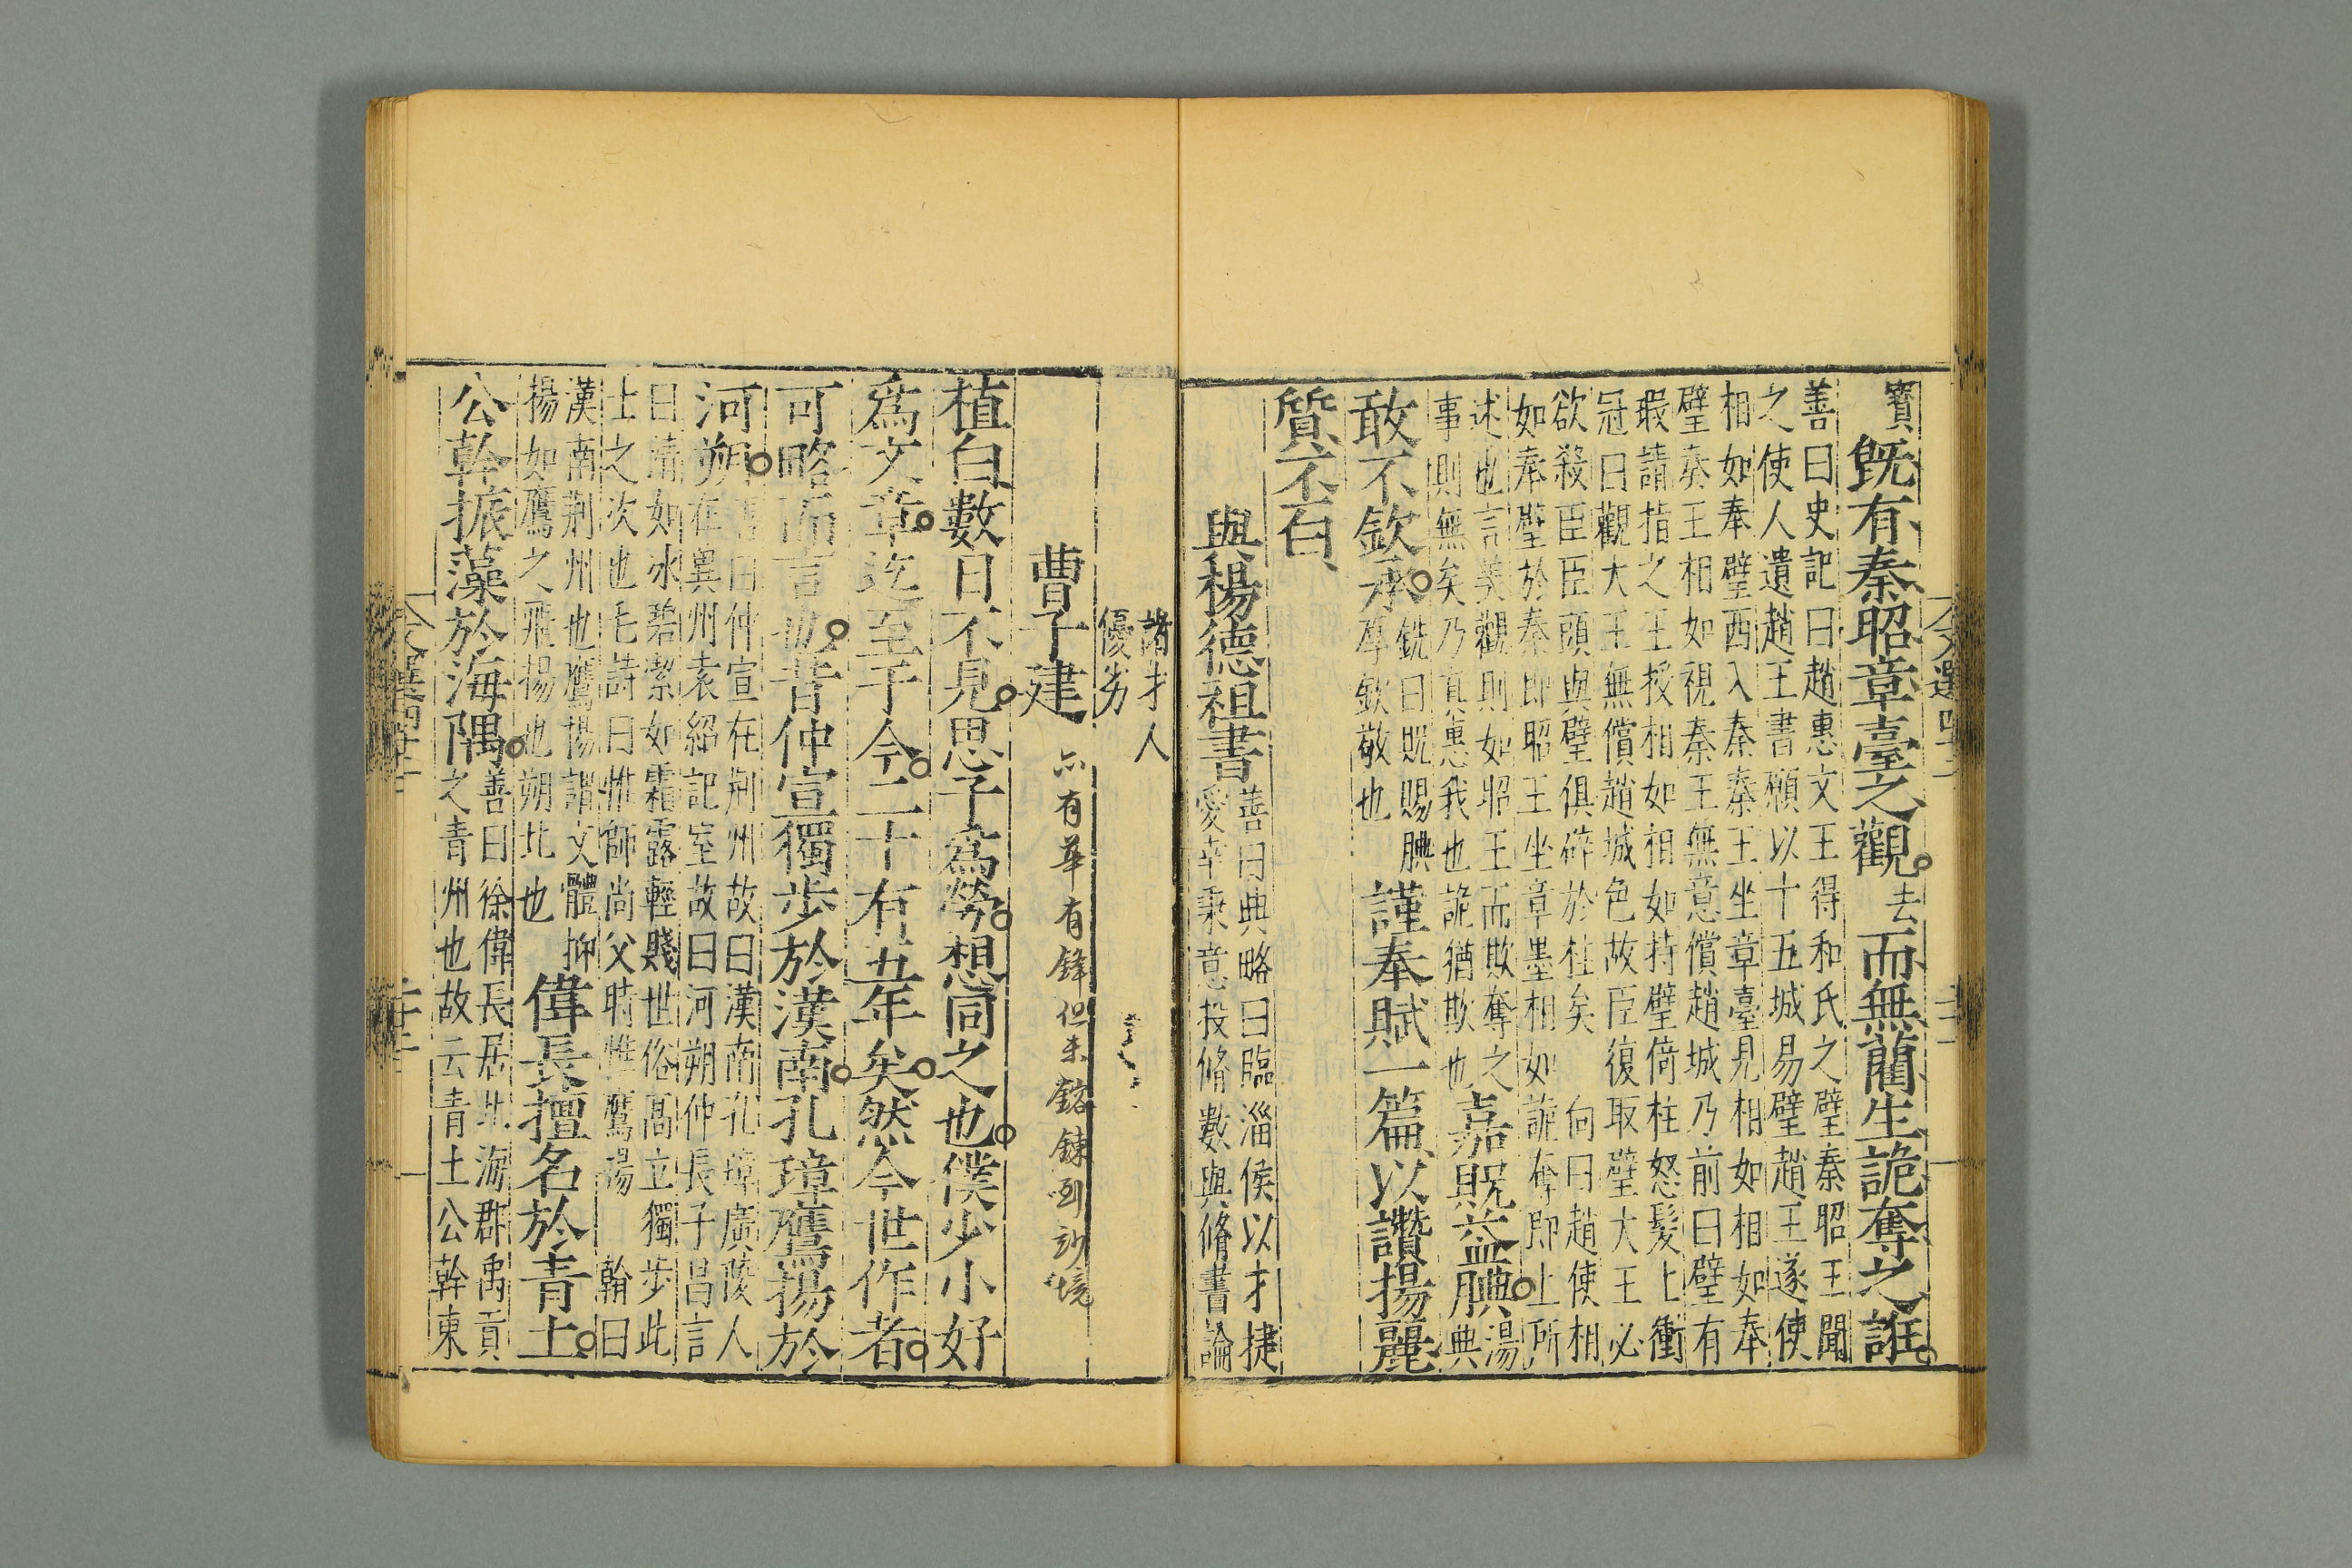 寶既有秦昭章臺之觀去而無藺生詭奪之誑
善曰史記曰趙惠文王得和氏之璧秦昭王聞
之使人遺趙王書願以十五城易璧趙王遂使
相如奉璧西入秦秦王坐章臺見相如相如奉
璧奏王相如視秦王無意償趙城乃前曰璧有
瑕請指之王授相如相如持璧倚柱怒髮上衝
冠曰觀大王無償趙城色故臣復取璧大王必
欲殺臣臣頭與璧俱碎於柱矣 向曰趙使相
如奉璧於秦即昭王坐章墨相如詭奪即上所
述也言美觀則如昭王而欺奪之
事則無矣乃真惠我也詭猶欺也
嘉貺益腆湯典
敢不欽承
銑曰貺賜腆
厚欽敬也
謹奉賦一篇以讚揚麗
質不白
與楊德祖書
善曰典略曰臨淄侯以才捷
愛幸秉意投脩數與脩書論
諸才人
優劣
曹子建
亦有華有鋒但未
植白數日不見思子為勞想同之也僕少小好
為文章迄至于今二十有五年矣然今世作者
可略而言也昔仲宣獨步於漢南孔璋鷹揚於
河朔
善曰仲宣在荆州故曰漢南孔璋廣陵人
在兾州袁紹記室故曰河朔仲長子昌言
曰清如冰碧潔如霜露輕賤世俗高立獨步此
士之次也毛詩曰惟師尚父時惟鷹揚 翰曰
漢南荆州也鷹揚謂文體抑
揚如鷹之飛揚也朔北也
偉長擅名於青土
公幹振藻於海隅
善曰徐偉長居北海郡禹貢
之青州也故云青土公幹東